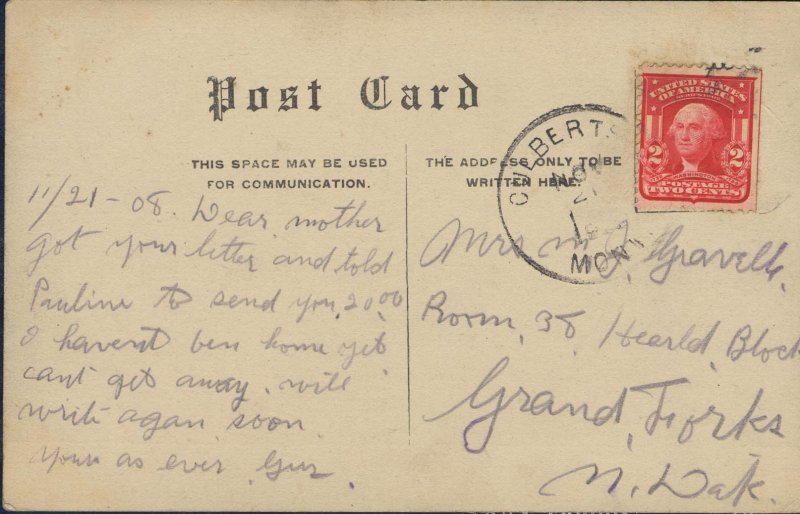 Post Card
THIS SPACE MAY BE USED
FOR COMMUNICATION.
THE ADDRESS ONLY TO BE
WRITTEN HERE.
11/21-08. Dear mother
got your letter and told
Pauline to send you 20.00
I havent ben home yet
cant get away. will
write agan soon
yours as ever Guz.
CULBERTS
NOV
21
MONT
UNITED STATES
OF AMERICA
2 2
WASHINGTON
POSTAGE
TWO CENTS
Mrs M J Gravelle,
Room, 38, Hearld, Block
Grand, Forks
N. Dak.